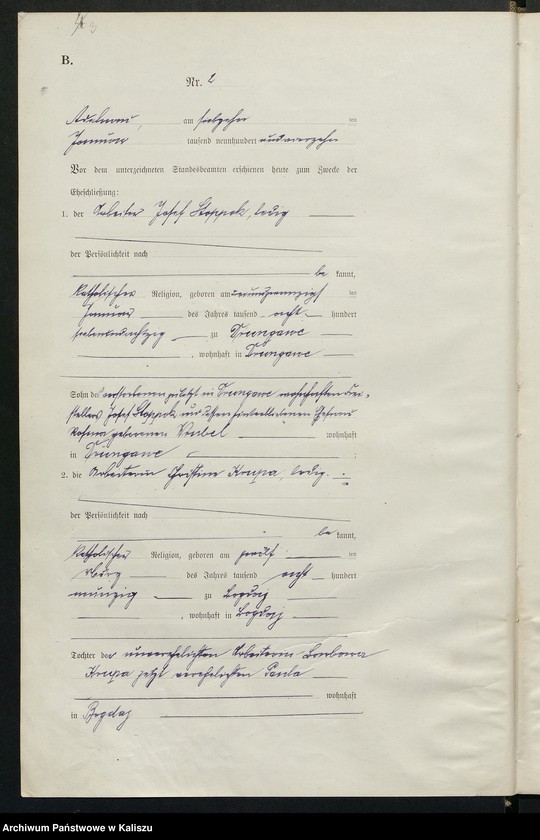 B.
Nr. 2
Adelnau, am siebzehn ten
Januar tausend neunhundert und vierzehn
Vor dem unterzeichneten Standesbeamten erschienen heute zum Zwecke der
Eheschließung:
1. der Arbeiter Josef Stoppok, ledig
der Persönlichkeit nach
be kannt,
katholischer Religion, geboren am ten
Januar des Jahres tausend acht hundert
siebenundachtzig zu
, wohnhaft in
Sohn des verstorbenen zuletzt in wohnhaften
Josef Stoppok und dessen Ehefrau
geborenen wohnhaft
in ;
2. die Arbeiterin Christine Krupa, ledig.
der Persönlichkeit nach
be kannt,
katholischer Religion, geboren am zwölf ten
März des Jahres tausend acht hundert
neunzig zu Bogdaj
, wohnhaft in Bogdaj
Tochter der unverehelichten Arbeiterin Barbara
Krupa jetzt verehelichten
wohnhaft
in Bogdaj
Archiwum Państwowe w Kaliszu